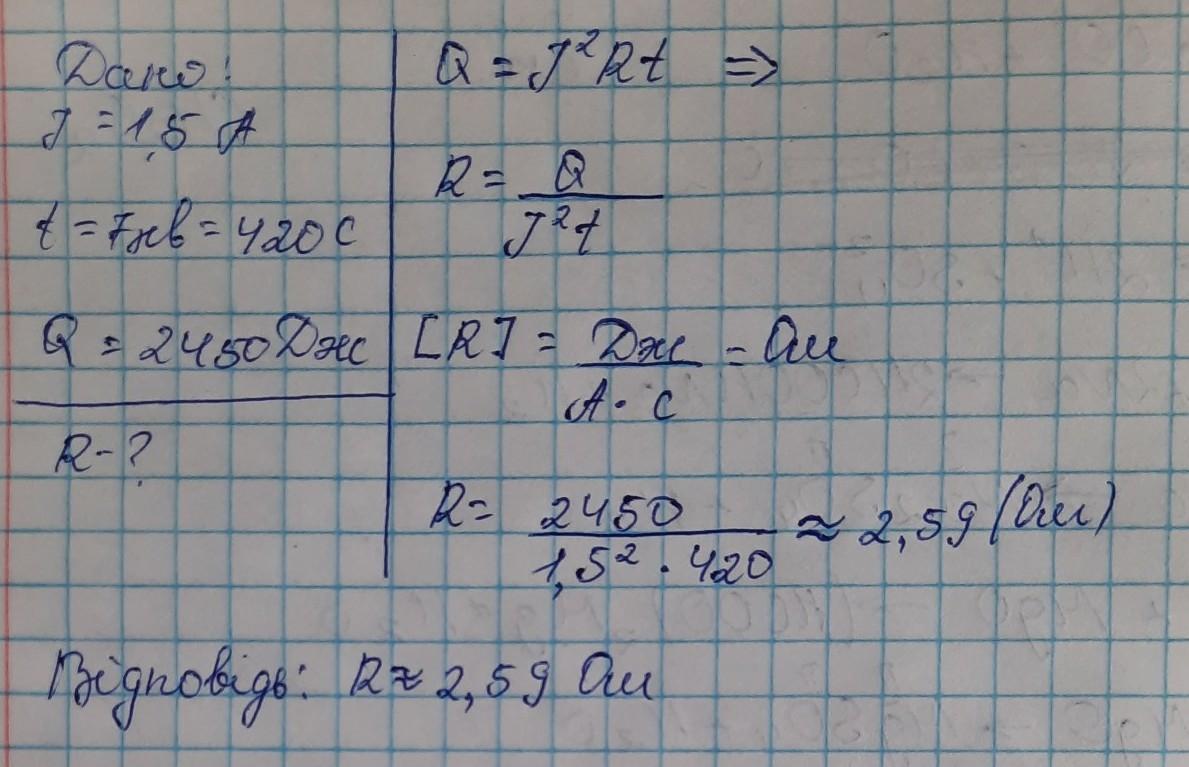 Дано:
J = 1,5 А
t = 7хв = 420 с
Q = 2450 Дж
R - ?
Q = J²Rt ⇒
R = Q / J²t
[R] = Дж / А · с = Ом
R = 2450 / 1,5² · 420 ≈ 2,59 (Ом)
Відповідь: R ≈ 2,59 Ом